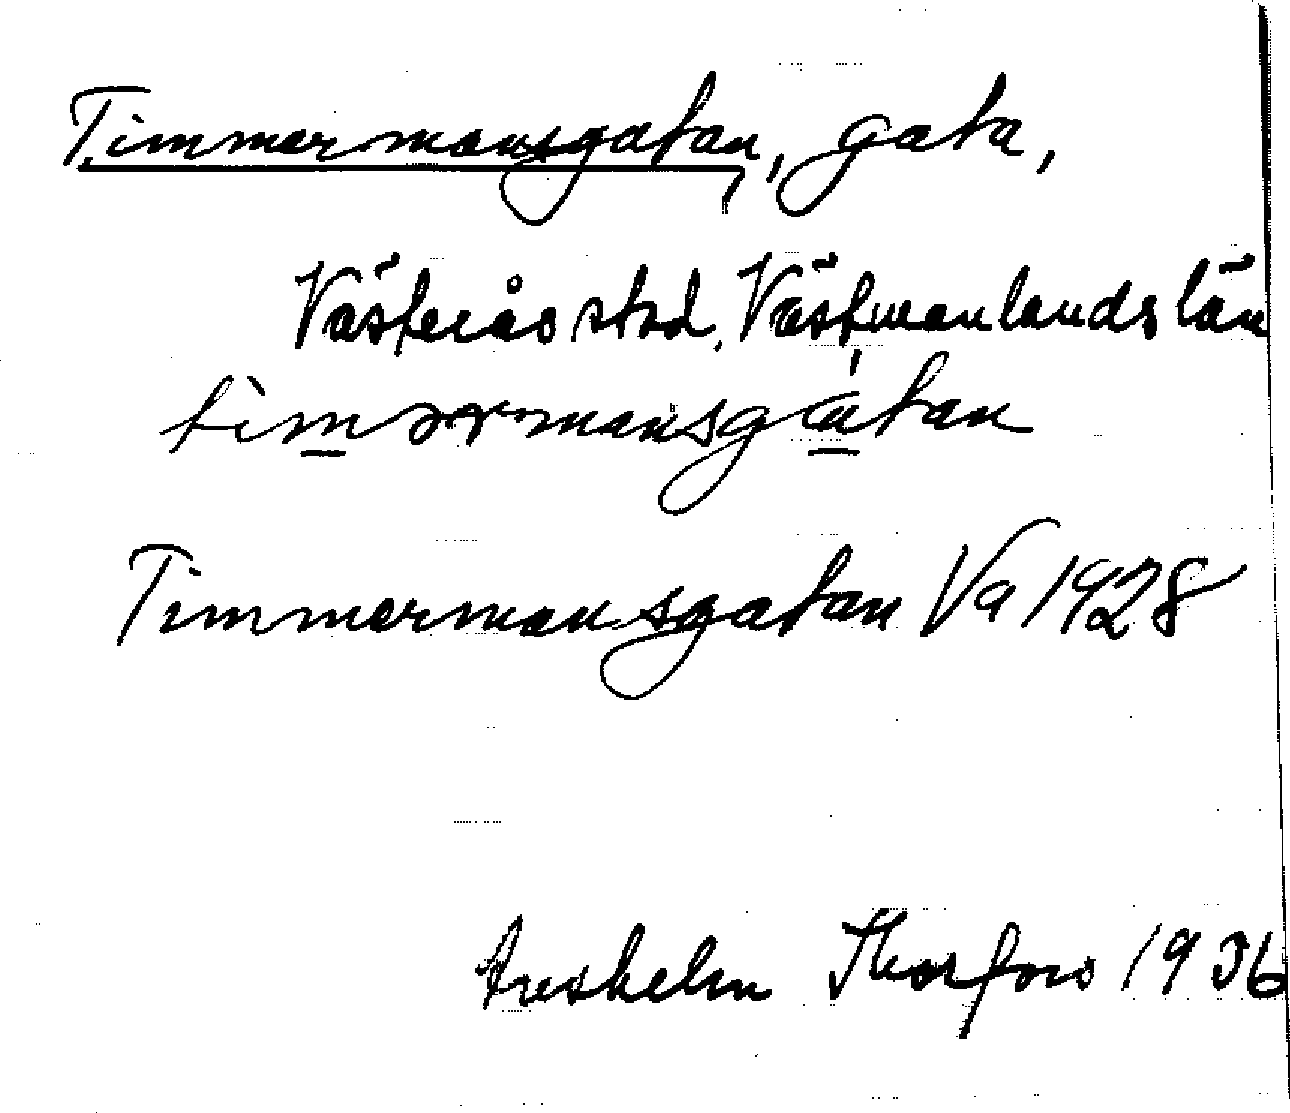 Timmermansgatan, gata,
Västerås stad, Västmanlands län
tìmərmansgɑ̀tan
Timmermansgatan Va 1928
Thorfors 1936